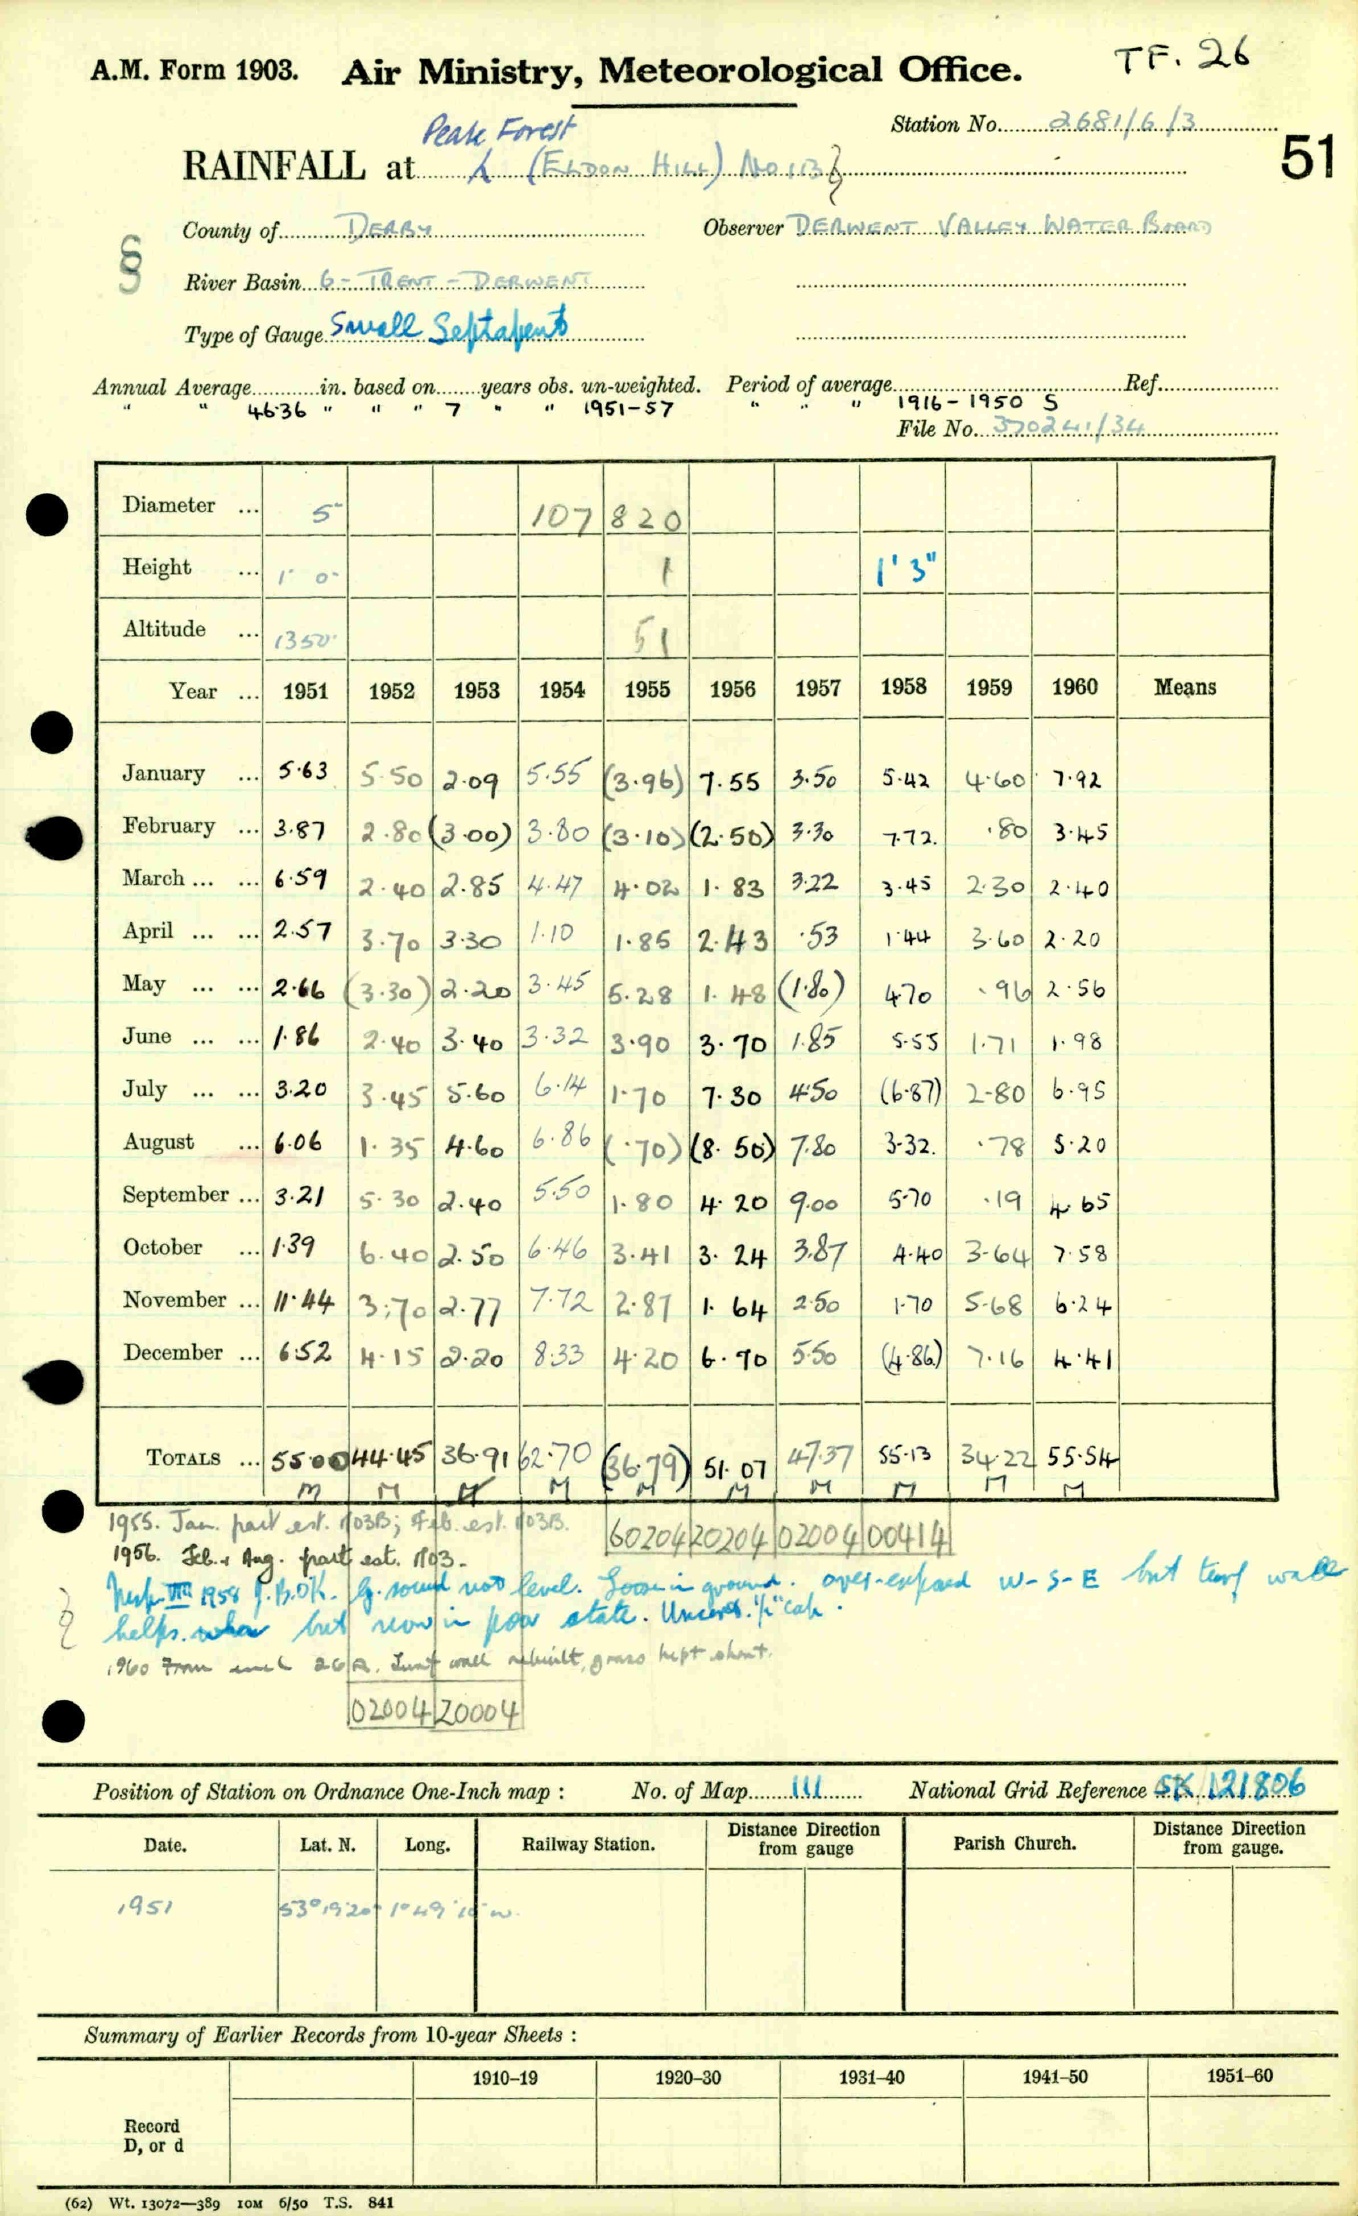 TF. 26
A.M. Form 1903. Air Ministry, Meteorological Office.
Station No. 2681/6/3
51
Peak Forest
RAINFALL at (ELDON HILL) No 113
County of DERBY Observer DERWENT VALLEY WATER BOARD
§
River Basin 6 - TRENT - DERWENT
Type of Gauge Small Septapent
Annual Average in. based on years obs. un-weighted. Period of average Ref.
" " 46.36 " " " 7 " " 1951-57 " " " 1916-1950 S
File No. 370241/34
Diameter ... 5" 107 820
Height ... 1' 0" 1 1' 3"
Altitude ... 1350' 51
Year ... 1951 1952 1953 1954 1955 1956 1957 1958 1959 1960 Means
January ... 5.63 5.50 2.09 5.55 (3.96) 7.55 3.50 5.42 4.60 7.92
February ... 3.87 2.80 (3.00) 3.80 (3.10) (2.50) 3.30 7.72 .80 3.45
March ... ... 6.59 2.40 2.85 4.47 4.02 1.83 3.22 3.45 2.30 2.40
April ... ... 2.57 3.70 3.30 1.10 1.85 2.43 .53 1.44 3.60 2.20
May ... ... 2.66 (3.30) 2.20 3.45 5.28 1.48 (1.80) 4.70 .96 2.56
June ... ... 1.86 2.40 3.40 3.32 3.90 3.70 1.85 5.55 1.71 1.98
July ... ... 3.20 3.45 5.60 6.14 1.70 7.30 4.50 (6.87) 2.80 6.95
August ... 6.06 1.35 4.60 6.86 (.70) (8.50) 7.80 3.32 .78 5.20
September ... 3.21 5.30 2.40 5.50 1.80 4.20 9.00 5.70 .19 4.65
October ... 1.39 6.40 2.50 6.46 3.41 3.24 3.87 4.40 3.64 7.58
November ... 11.44 3.70 2.77 7.72 2.87 1.64 2.50 1.70 5.68 6.24
December ... 6.52 4.15 2.20 8.33 4.20 6.70 5.50 (4.86) 7.16 4.41
TOTALS ... 55.00 44.45 36.91 62.70 (36.79) 51.07 47.37 55.13 34.22 55.54
M M M M M M M M M M
1955. Jan. part est. 1103B; Feb. est. 1103B.
60204 20204 02004 00414
1956. Feb. & Aug. part est. 1103.
Insp. VIII 1958 G. sound not level. Loose in ground. over-exposed W-S-E but turf wall
helps. but now in poor state. cap.
1960 From 26A. Turf wall rebuilt, grass kept short.
02004 20004
Position of Station on Ordnance One-Inch map : No. of Map 111 National Grid Reference SK 121806
Date. Lat. N. Long. Railway Station. Distance Direction from gauge Parish Church. Distance Direction from gauge.
1951 53° 19' 20" 1° 49' 10" W.
Summary of Earlier Records from 10-year Sheets :
1910–19 1920–30 1931–40 1941–50 1951–60
Record
D, or d
(62) Wt. 13072—389 10M 6/50 T.S. 841